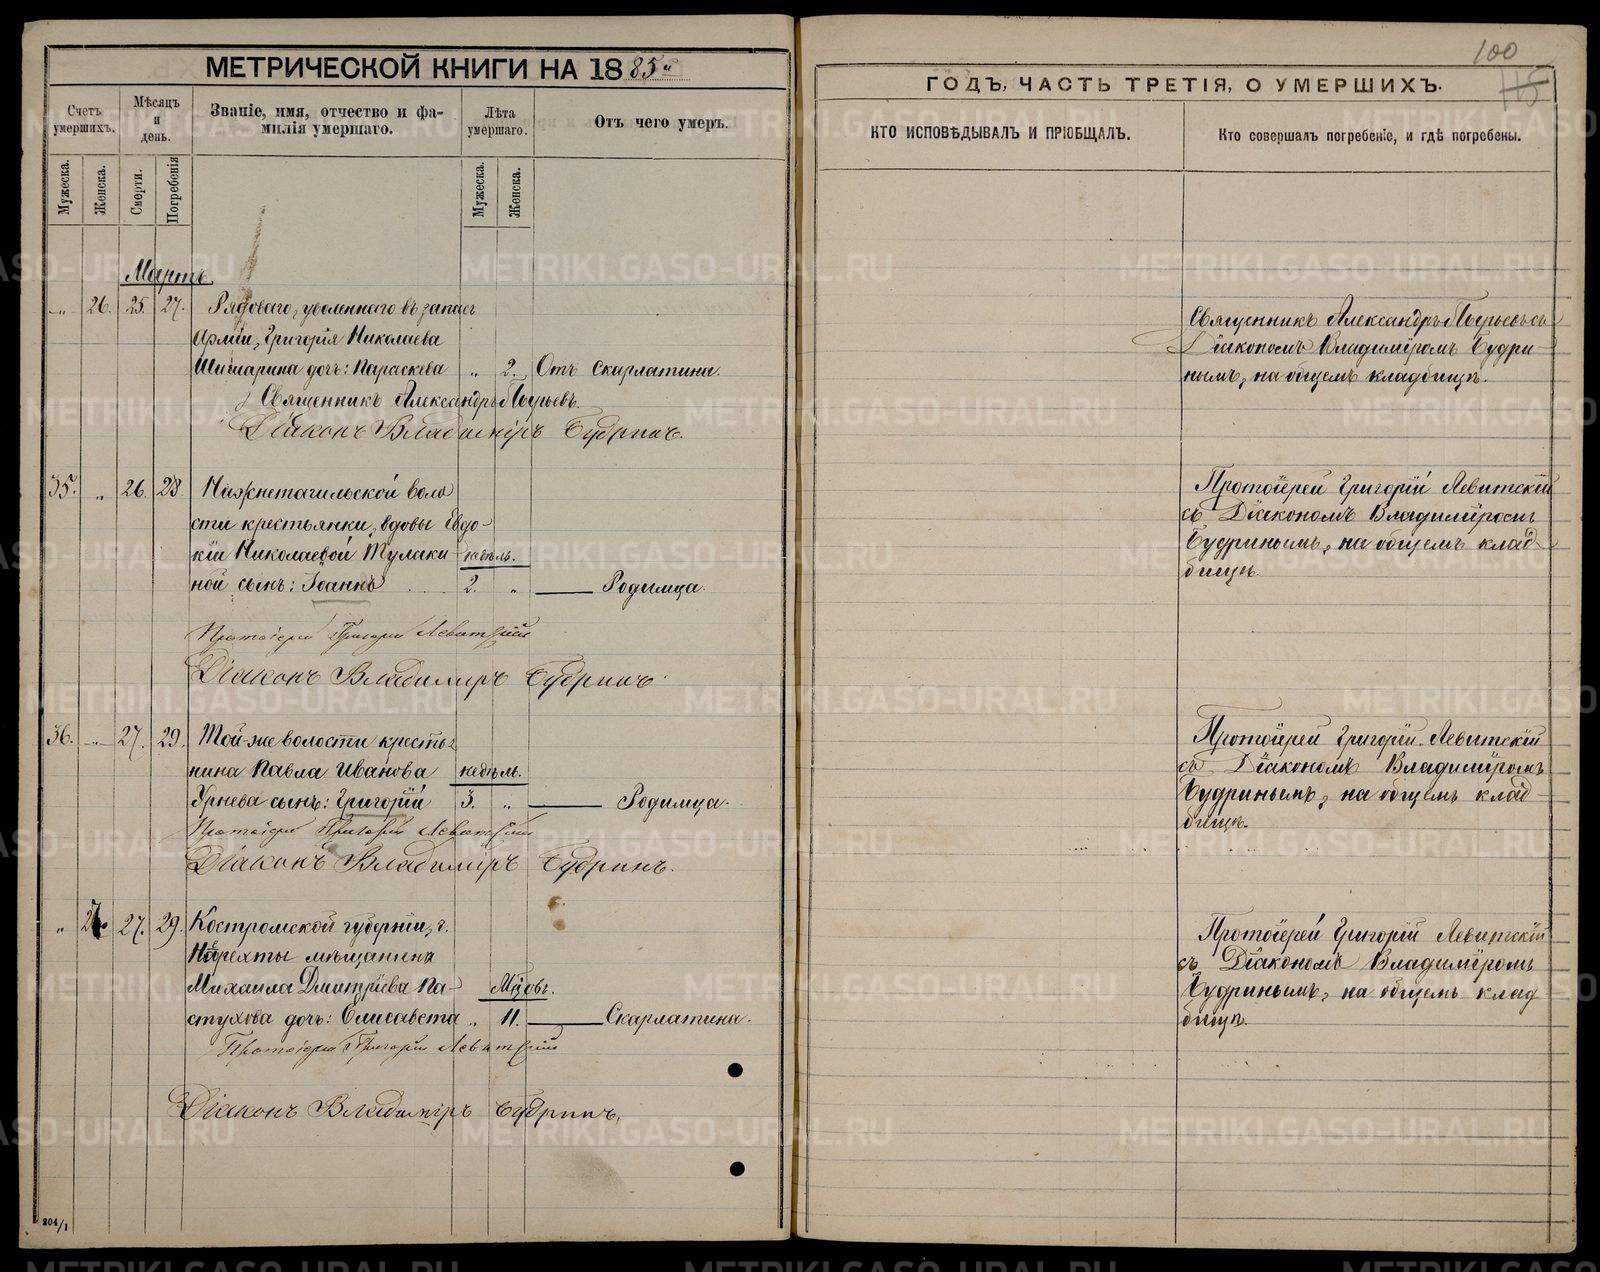 МЕТРИЧЕСКОЙ КНИГИ НА 1885й
Счетъ умершихъ.
Мѣсяцъ и день.
Званіе, имя, отчество и фа-
милія умершаго.
Лѣта умершаго.
Отъ чего умеръ.
Мужеска.
Женска.
Смерти.
Погребенія
Мужеска.
Женска.
Мартъ.
„ 26. 25. 27. Рядоваго, уволеннаго въ запасъ
Арміи, Григорія Николаева
Шишарина дочь: Параскева „ 2. Отъ скарлатина.
Священникъ Александръ
Діаконъ Владиміръ Будринъ.
35. „ 26. 28. Нижнетагильской воло
сти крестьянки, вдовы Евдо-
кіи Николаевой Тулаки недѣль.
ной сынъ: Іоаннъ 2. „ Родимца.
Протоіерей Григорій Левитскій
Діаконъ Владиміръ Будринъ.
36. „ 27. 29. Той-же волости кресть-
нина Павла Иванова недѣль.
Урнева сынъ: Григорій 3. „ Родимца.
Протоіерей Григорій Левитскій
Діаконъ Владиміръ Будринъ.
„ 27. 27. 29. Костромской губерніи, г.
Нерехты мѣщанина
Михаила Дмитріева Па- Мѣсяцъ.
стухова дочь: Елисавета „ 11. Скарлатина.
Протоіерей Григорій Левитскій
Діаконъ Владиміръ Будринъ.
204/1
100
115
ГОДЪ, ЧАСТЬ ТРЕТІЯ, О УМЕРШИХЪ.
КТО ИСПОВѢДЫВАЛЪ И ПРІОБЩАЛЪ.
Кто совершалъ погребеніе, и гдѣ погребены.
Священникъ Александръ съ
Діакономъ Владиміромъ Будри-
нымъ, на общемъ кладбищѣ.
Протоіерей Григорій Левитскій
съ Діакономъ Владиміромъ
Будринымъ, на общемъ клад-
бищѣ.
Протоіерей Григорій Левитскій
съ Діакономъ Владиміромъ
Будринымъ, на общемъ клад-
бищѣ.
Протоіерей Григорій Левитскій
съ Діакономъ Владиміромъ
Будринымъ, на общемъ клад
бищѣ.
METRIKI.GASO-URAL.RU